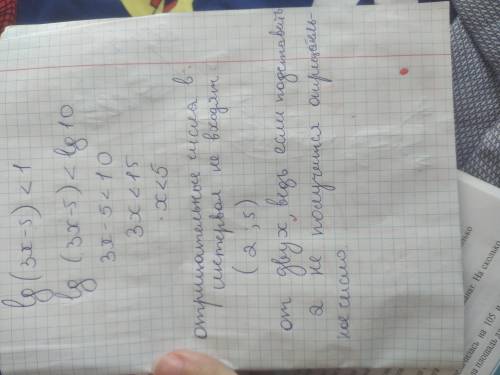 lg (3x-5) < 1
lg (3x-5) < lg 10
3x-5<10
3x<15
x<5
отрицательные числа в
интервал не входят
(2 ; 5)
от двух, ведь если подставить
2 не получится отрицатель-
ное число.
на 105
На сколько
площадь